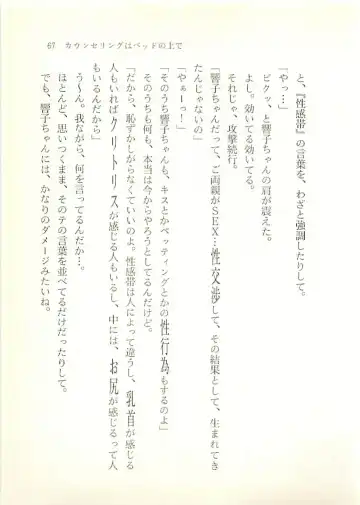 67 カウンセリングはベッドの上で
と、『性感帯』の言葉を、わざと強調したりして。
「やっ…」
ビクッ、と響子ちゃんの肩が震えた。
よし。効いてる効いてる。
それじゃ、攻撃続行。
「響子ちゃんだって、ご両親がSEX…性交渉して、その結果として、生まれてき
たんじゃないの」
「やぁーっ!」
「そのうち響子ちゃんも、キスとかペッティングとかの性行為もするのよ」
そのうちも何も、本当は今からやろうとしてるんだけど。
「だから、恥ずかしがらなくていいのよ。性感帯は人によって違うし、乳首が感じる
人もいればクリトリスが感じる人もいるし、中には、お尻が感じるって人
もいるんだから」
う〜ん。我ながら、何を言ってるんだか…。
ほとんど、思いつくまま、そのテの言葉を並べてるだけだったりして。
でも、響子ちゃんには、かなりのダメージみたいね。